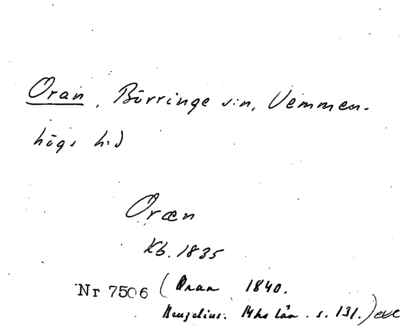 Oran, Börringe s:n, Vemmen-
högs h:d
Oræn
Kb. 1835
Nr 7506 (Oran 1840.
Mhs län. s. 131.)